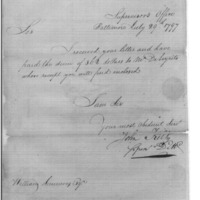 Supervisors Office
Baltimore July 29th 1797
Sir
I received your letter and have
paid the sum of dollars to Mr De
whose receipt you will find enclosed
I am Sir
Your most obedient Servt
John
William Esqr